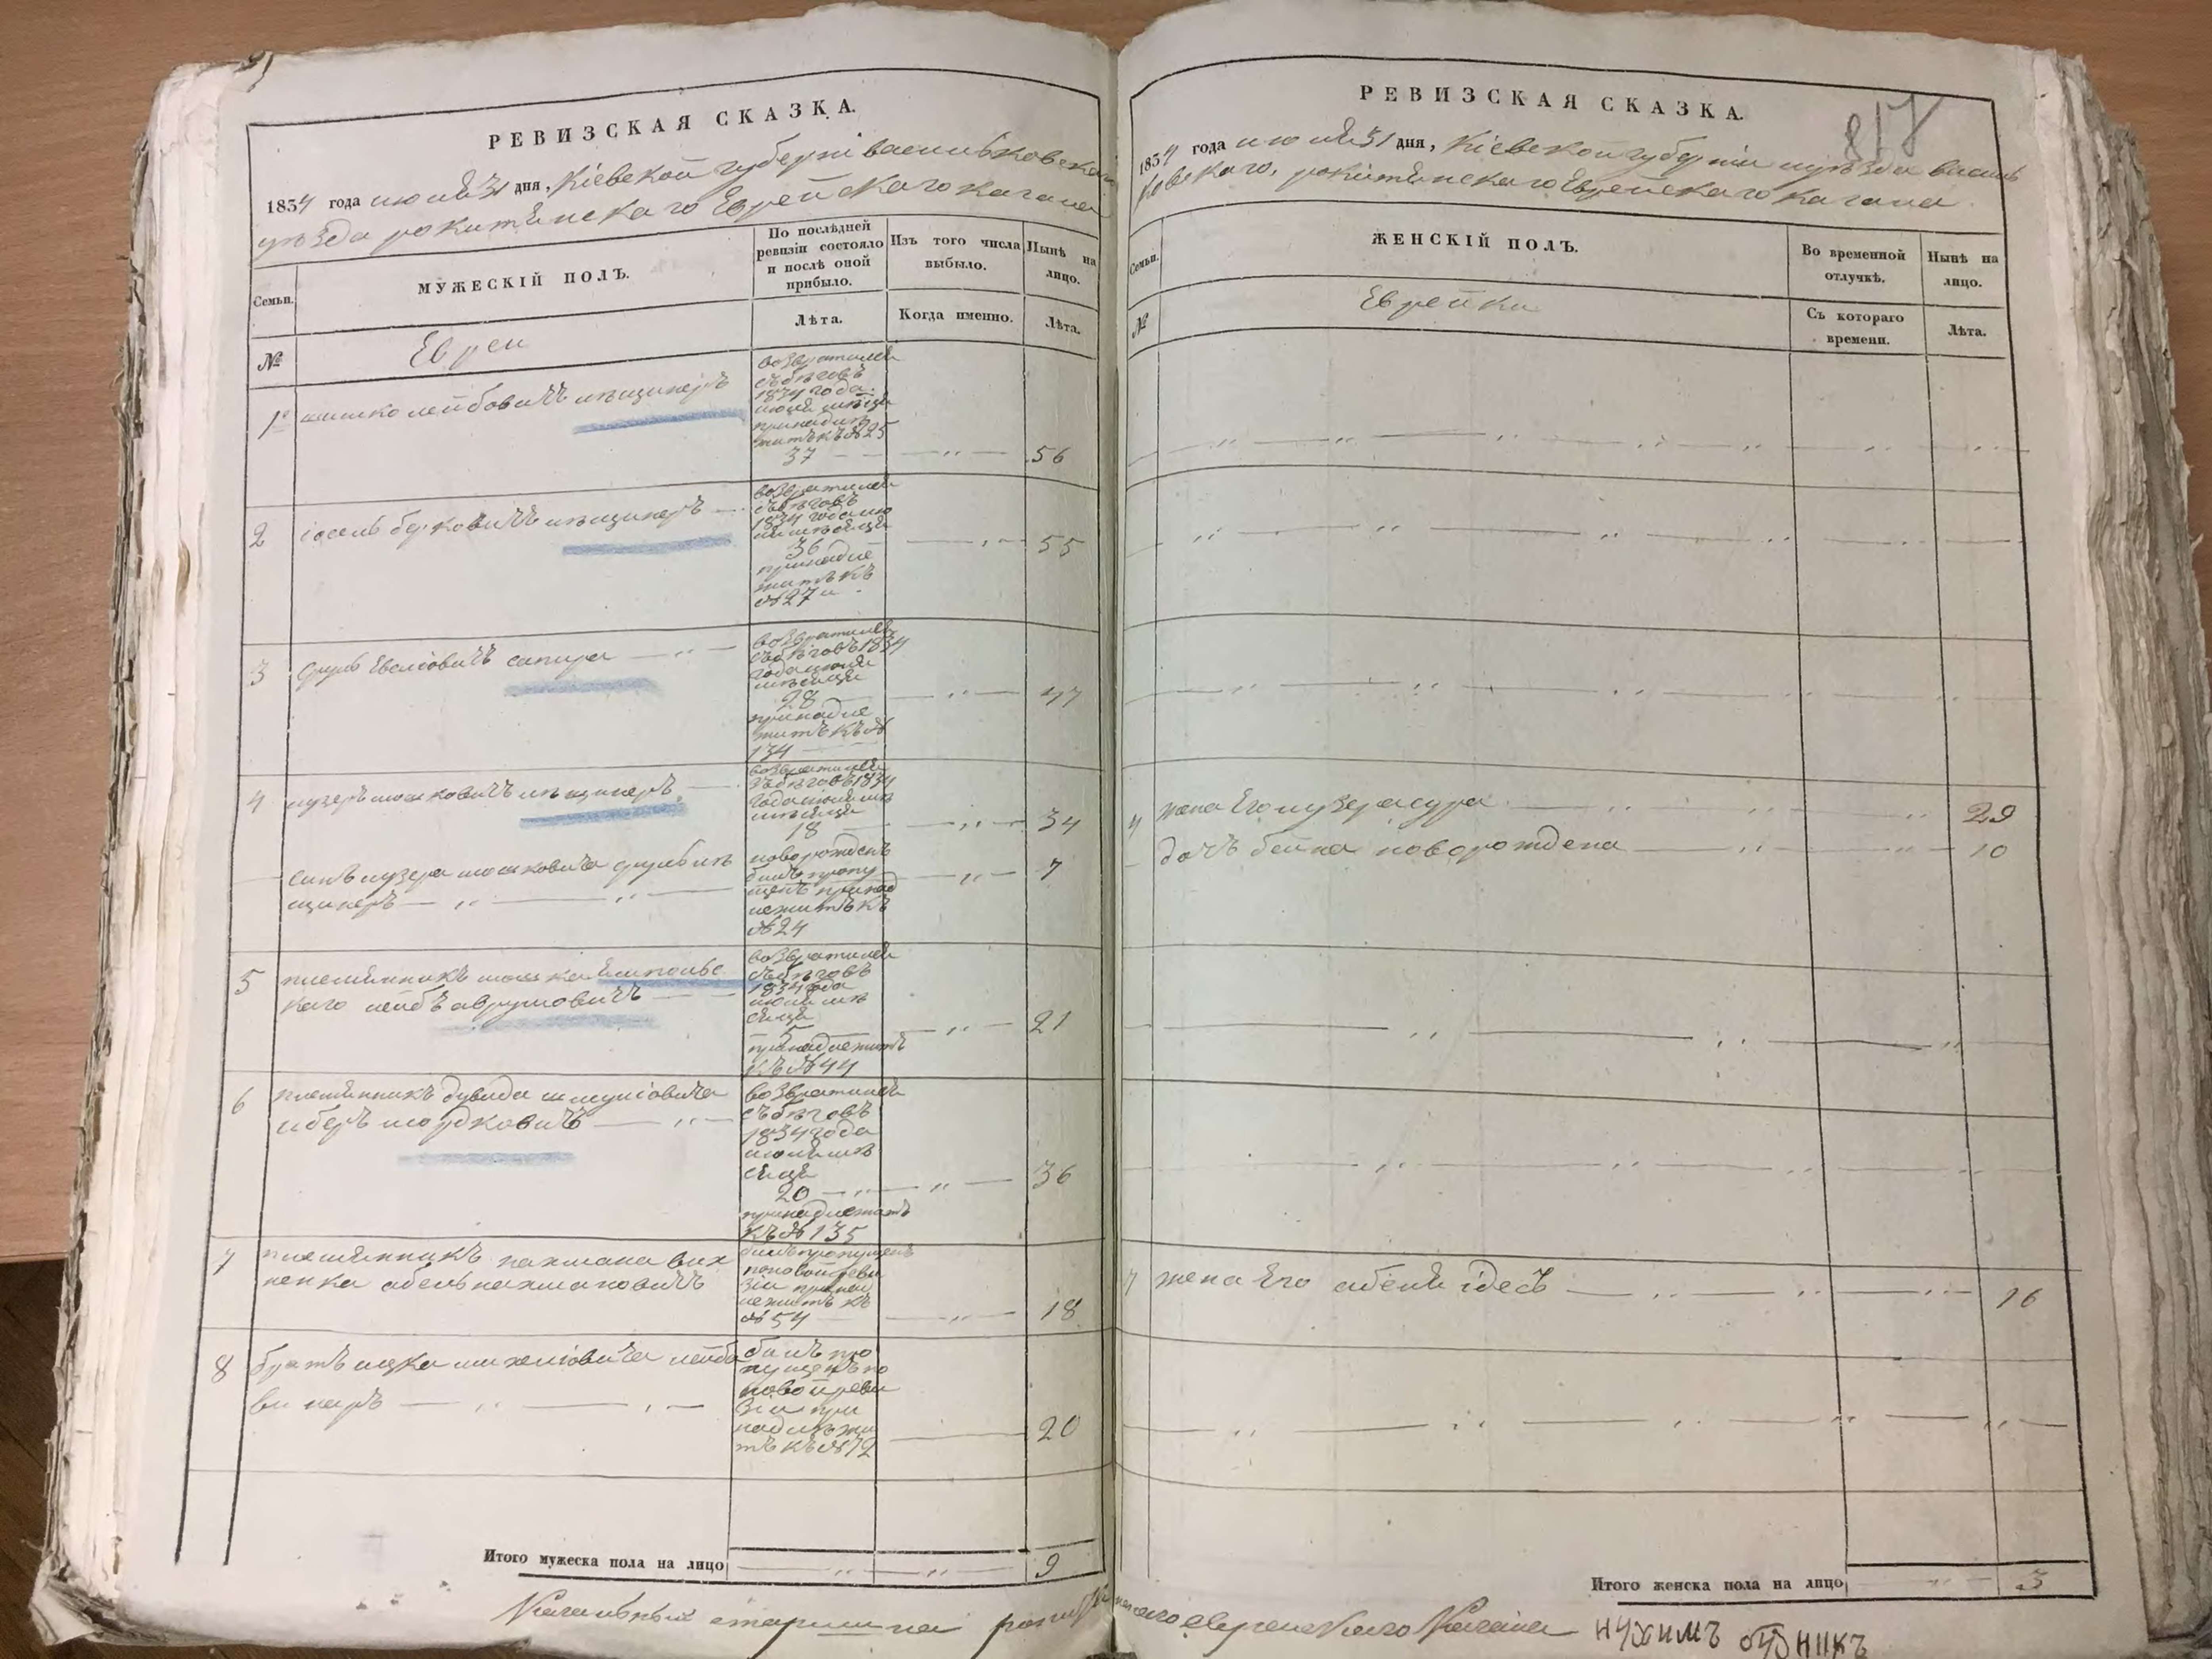 РЕВИЗСКАЯ СКАЗКА.
1834 года июля 31 дня, Кіевской губерніи васильковскаго
уѣзда рокитянскаго Еврейскаго кагала
Семьи.
МУЖЕСКІЙ ПОЛЪ.
По послѣдней
ревизіи состояло
и послѣ оной
прибыло.
Изъ того числа
выбыло.
Нынѣ на
лицо.
№
Евреи
Лѣта.
Когда именно.
Лѣта.
1
лейбовичъ
возвратился
съ бѣговъ
1834 года
июля мѣсяца
принадле
житъ къ №25
37
56
2
іосель берковичъ
возвратился
съ бѣговъ
1834 года ию
ля мѣсяца
36
принадле
житъ къ
№27
55
3
сруль сапира
возвратился
съ бѣговъ 1834
года июля
мѣсяца
28
принадле
житъ къ №
134
47
4
лузеръ мошковичъ
возвратился
съ бѣговъ 1834
года июля
мѣсяца
18
34
синъ лузера мошковича сруль
новорожденъ
билъ пропу
щенъ принад
лежитъ къ
№24
7
5
племянникъ мошка
каго лейбъ аврумовичъ
возвратился
съ бѣговъ
1834 года
июля мѣ
сяца
5
принадлежитъ
къ №44
21
6
племянникъ дувида шмуліовича
либеръ мордковичъ
возвратился
съ бѣговъ
1834 года
июля мѣ
сяца
20
принадлежитъ
къ №135
36
7
племянникъ нахмана вин
ника абель нахмановичъ
билъ пропущенъ
по новой реви
зіи принад
лежитъ къ
№54
18
8
братъ ицка михеліовича лейба
винеръ
билъ про
пущенъ по
новой реви
зіи при
надлежи
тъ къ №72
20
Итого мужеска пола на лицо
9
817
РЕВИЗСКАЯ СКАЗКА.
1834 года июля 31 дня, Кіевской губерніи уѣзда василь
ковскаго, рокитянскаго Еврейскаго кагала
Семьи.
ЖЕНСКІЙ ПОЛЪ.
Во временной
отлучкѣ.
Нынѣ на
лицо.
№
Еврейки
Съ котораго
времени.
Лѣта.
4
жена Его лузера сура
29
дочъ бейла новорождена
10
7
жена Его абеля ідесъ
16
Итого женска пола на лицо
3
Кагальный старшина рокитянскаго еврейскаго Кагала нухимъ